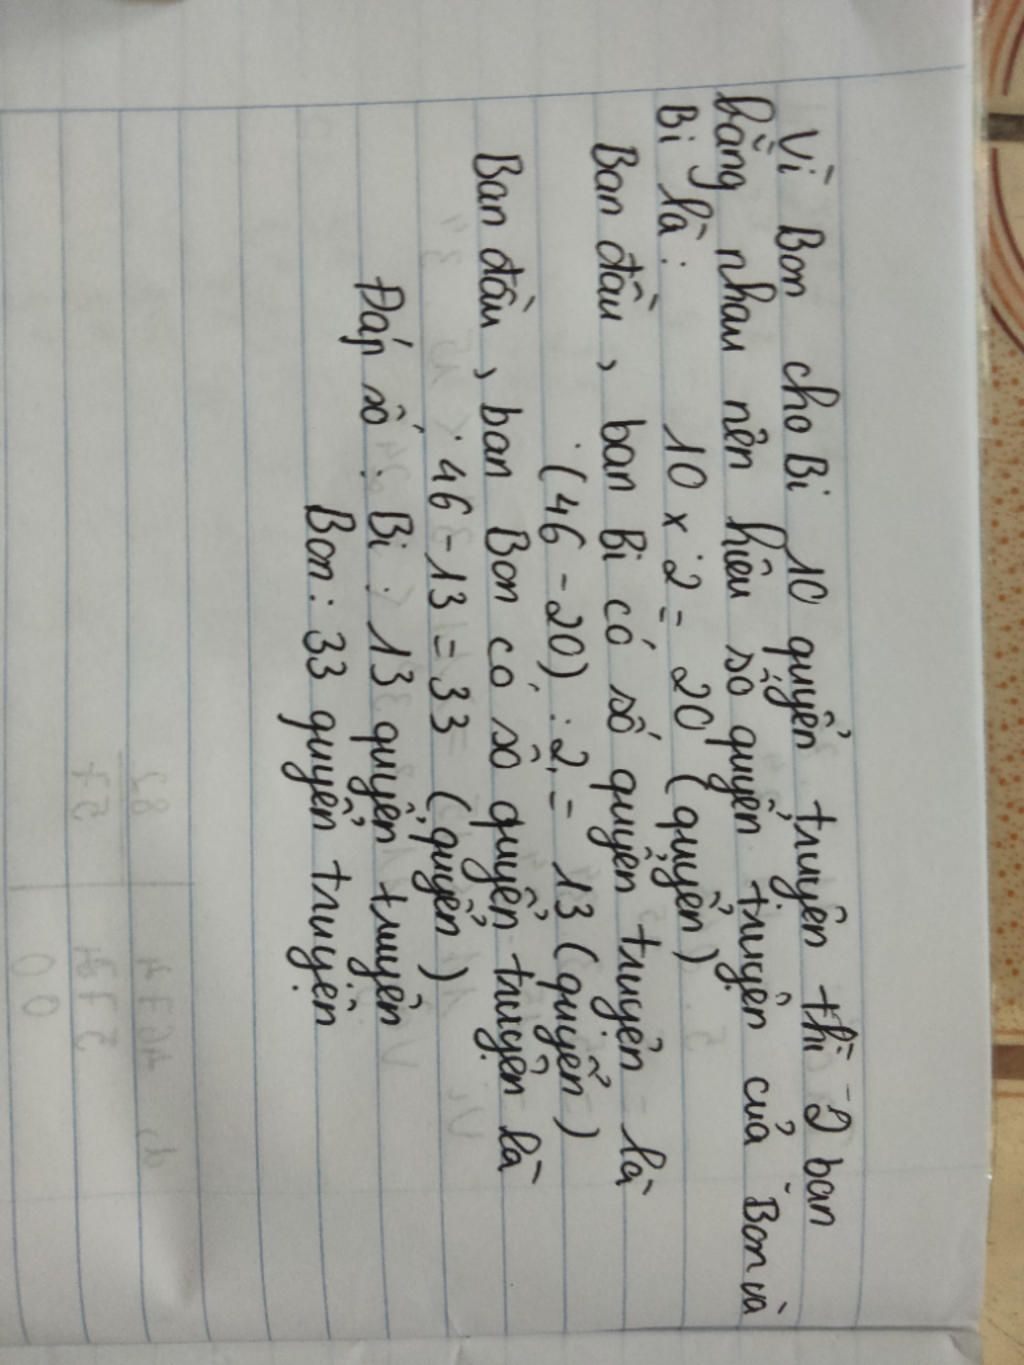 Vì Bon cho Bi 10 quyển truyện thì 2 bạn
bằng nhau nên hiệu số quyển truyện của Bon và
Bi là: 10 x 2 = 20 (quyển)
Ban đầu, bạn Bi có số quyển truyện là
(46 - 20) : 2 = 13 (quyển)
Ban đầu, bạn Bon có số quyển truyện là
46 - 13 = 33 (quyển)
Đáp số: Bi: 13 quyển truyện
Bon: 33 quyển truyện